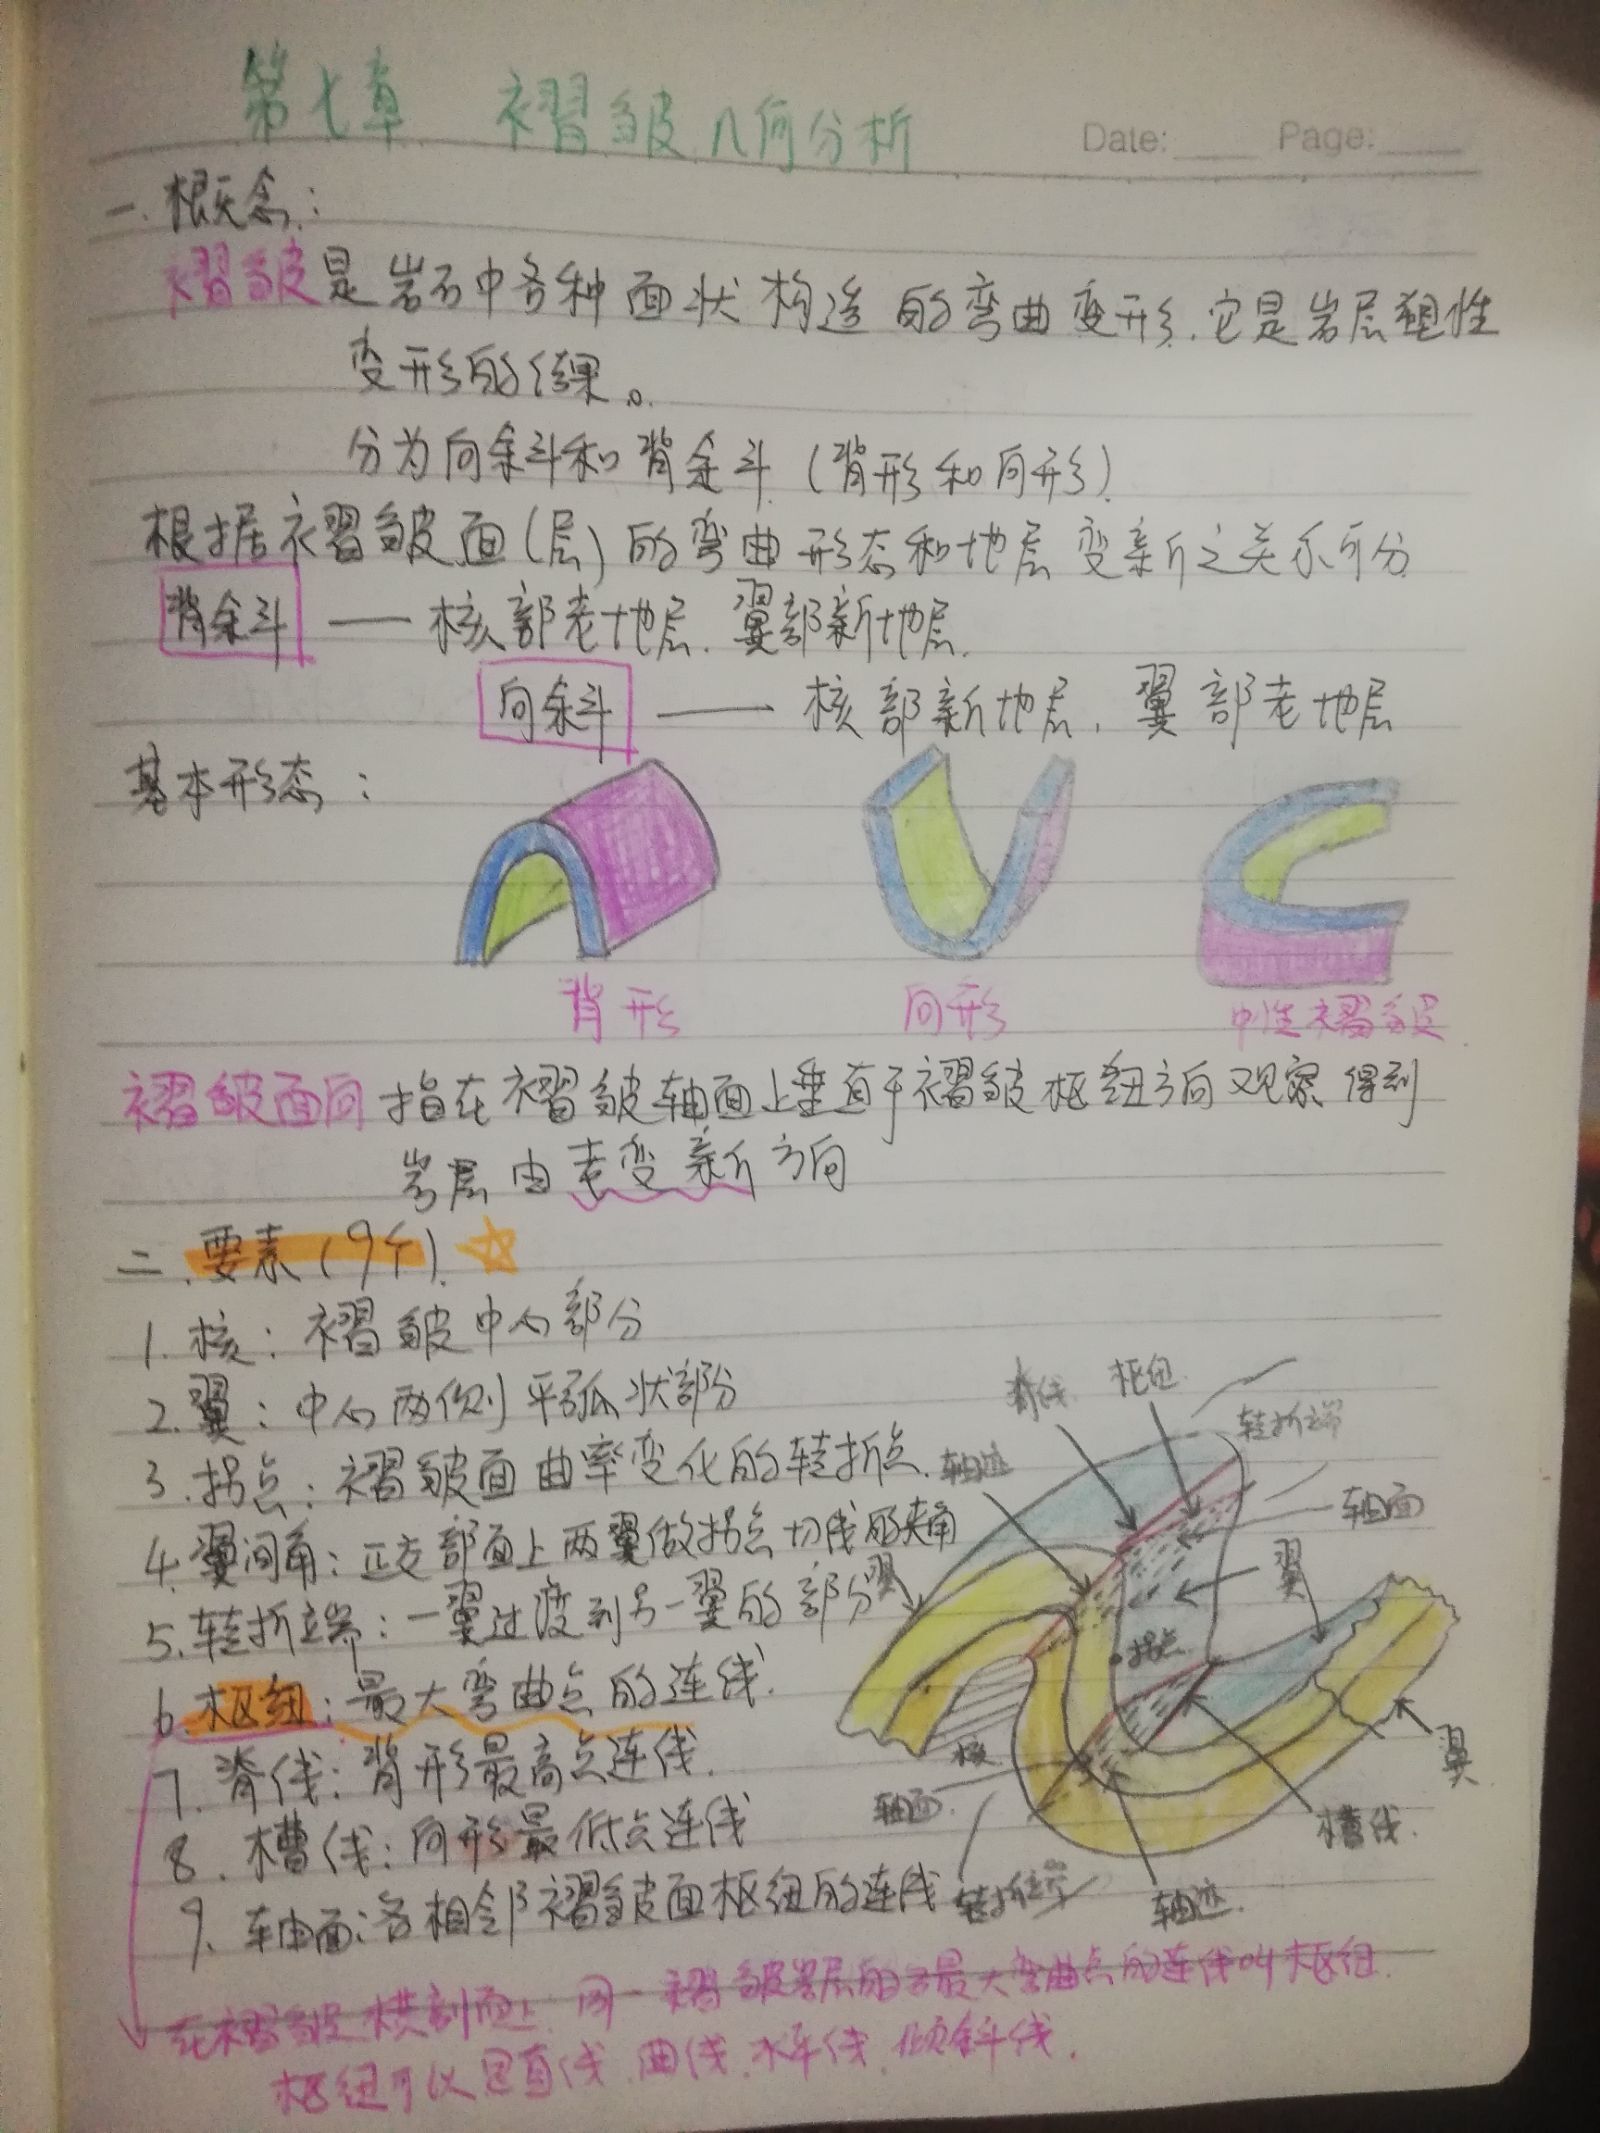 第七章 褶皱几何分析
Date: Page:
一. 概念:
褶皱是岩石中各种面状构造的弯曲变形.它是岩层塑性
变形的结果。
分为向斜和背斜 (背形和向形)
根据褶皱面(层)的弯曲形态和地层变新之关系可分
背斜 —— 核部老地层. 翼部新地层.
向斜 —— 核部新地层, 翼部老地层
基本形态:
背形 向形 中性褶皱
褶皱面向 指在褶皱轴面上垂直于褶皱枢纽方向观察得到
岩层由老变新方向
二. 要素(9个)
1. 核: 褶皱中心部分
2. 翼: 中心两侧平弧状部分
3. 拐点: 褶皱面曲率变化的转折点.
4. 翼间角: 正交部面上两翼做拐点切线的夹角
5. 转折端: 一翼过渡到另一翼的部分
6. 枢纽: 最大弯曲点的连线.
7. 脊线: 背形最高点连线.
8. 槽线: 向形最低点连线
9. 轴面: 各相邻褶皱面枢纽的连线
脊线 枢纽
转折端
轴迹
轴面
翼
翼
拐点
核
翼
轴面
槽线.
转折端
轴迹.
在褶皱横剖面上 同一褶皱岩层的各最大弯曲点的连线叫枢纽.
枢纽可以是直线.曲线.水平线.倾斜线.